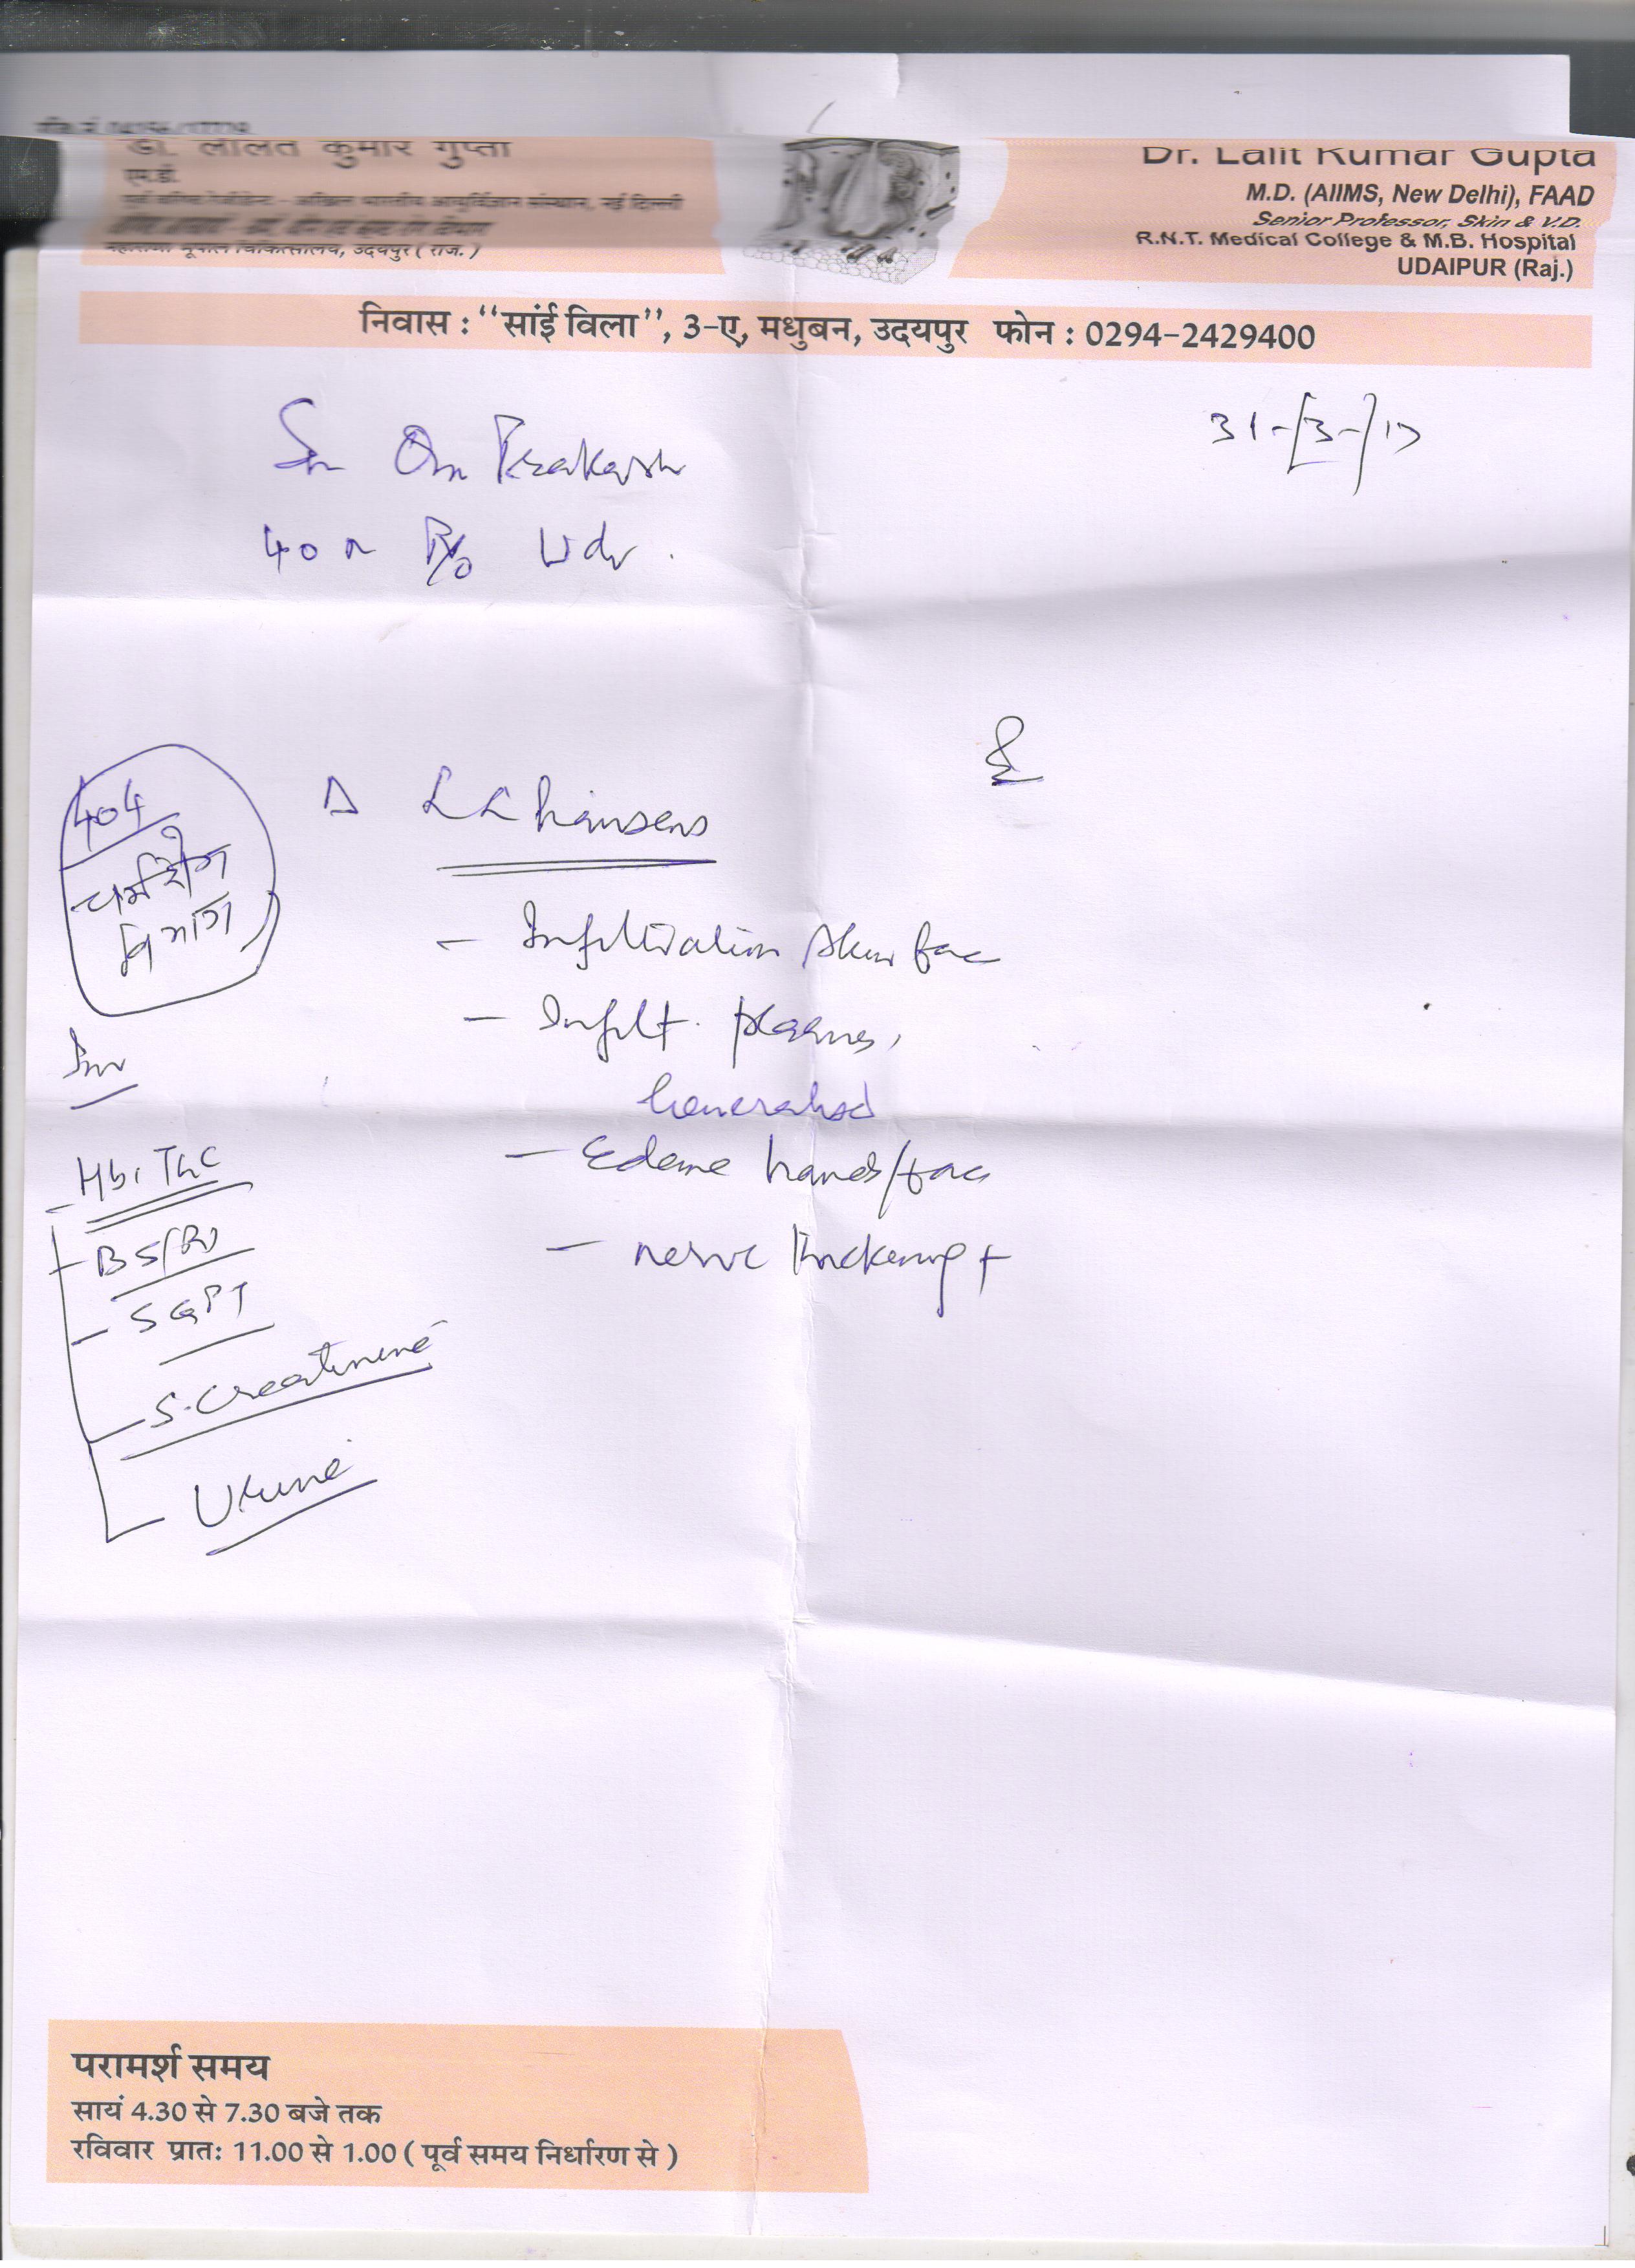 डॉ. ललित कुमार गुप्ता
एम.डी.
पूर्व वरिष्ठ रेजीडेन्ट - अखिल भारतीय आयुर्विज्ञान संस्थान, नई दिल्ली
चिकित्सालय, उदयपुर ( राज. )
Dr. Lalit Kumar Gupta
M.D. (AIIMS, New Delhi), FAAD
Senior Professor, Skin & V.D.
R.N.T. Medical College & M.B. Hospital
UDAIPUR (Raj.)
निवास : "सांई विला", 3-ए, मधुबन, उदयपुर फोन : 0294-2429400
31-3-17
Om Prakash
40 R/o Udr.
404
चर्मरोग
विभाग
Δ LL hansens
- Infiltration skin fac
- Infilt. plaques,
Generalised
- Edema hands/fac
- nerve thickening +
Inv
- Hb, TLC
- BS(R)
- SGPT
- S. Creatinine
- Urine
परामर्श समय
सायं 4.30 से 7.30 बजे तक
रविवार प्रातः 11.00 से 1.00 ( पूर्व समय निर्धारण से )